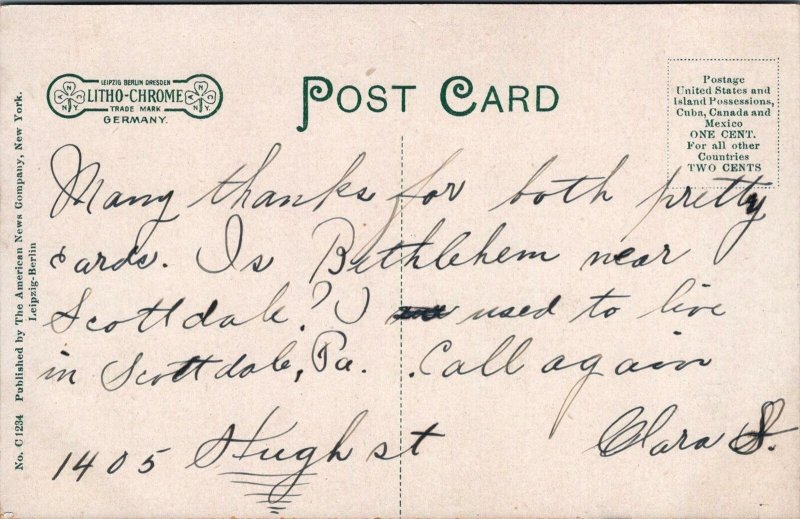 LEIPZIG BERLIN DRESDEN
LITHO-CHROME
TRADE MARK
GERMANY.
A N C N.Y.
A N C N.Y.
POST CARD
Postage
United States and
Island Possessions,
Cuba, Canada and
Mexico
ONE CENT.
For all other
Countries
TWO CENTS
No. C 1234 Published by The American News Company, New York.
Leipzig-Berlin
Many thanks for both pretty
cards. Is Bethlehem near
Scottdale? I used to live
in Scottdale, Pa. Call again
1405 Hugh st
Clara S.